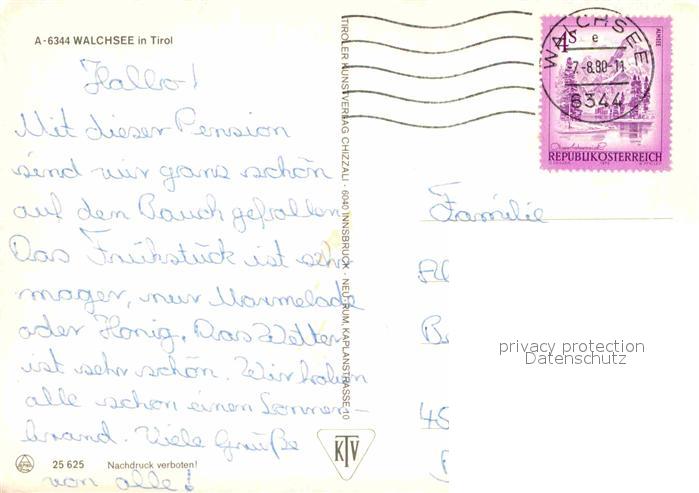 A-6344 WALCHSEE in Tirol
Hallo!
Mit dieser Pension
sind wir ganz schön
auf den Bauch gefallen.
Das Frühstück ist sehr
mager, nur Marmelade
oder Honig. Das Wetter
ist sehr schön. Wir haben
alle schon einen Sonnen-
brand. Viele Grüße
von alle!
25 625 Nachdruck verboten!
TIROLER KUNSTVERLAG CHIZZALI · 6040 INNSBRUCK · NEU-RUM, KAPLANSTRASSE 10
KTV
WALCHSEE
e
7.-8.80-11
6344
4S
ALMSEE
REPUBLIK ÖSTERREICH
Familie
45
privacy protection
Datenschutz